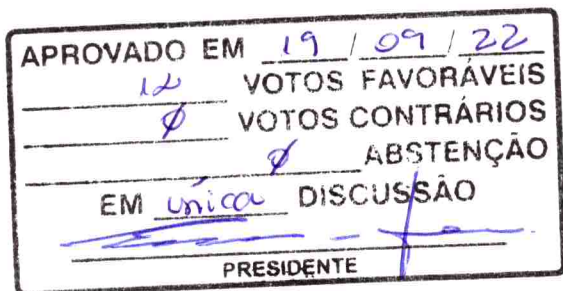 APROVADO EM 19 / 09 / 22
12 VOTOS FAVORÁVEIS
Ø VOTOS CONTRÁRIOS
Ø ABSTENÇÃO
EM única DISCUSSÃO
PRESIDENTE